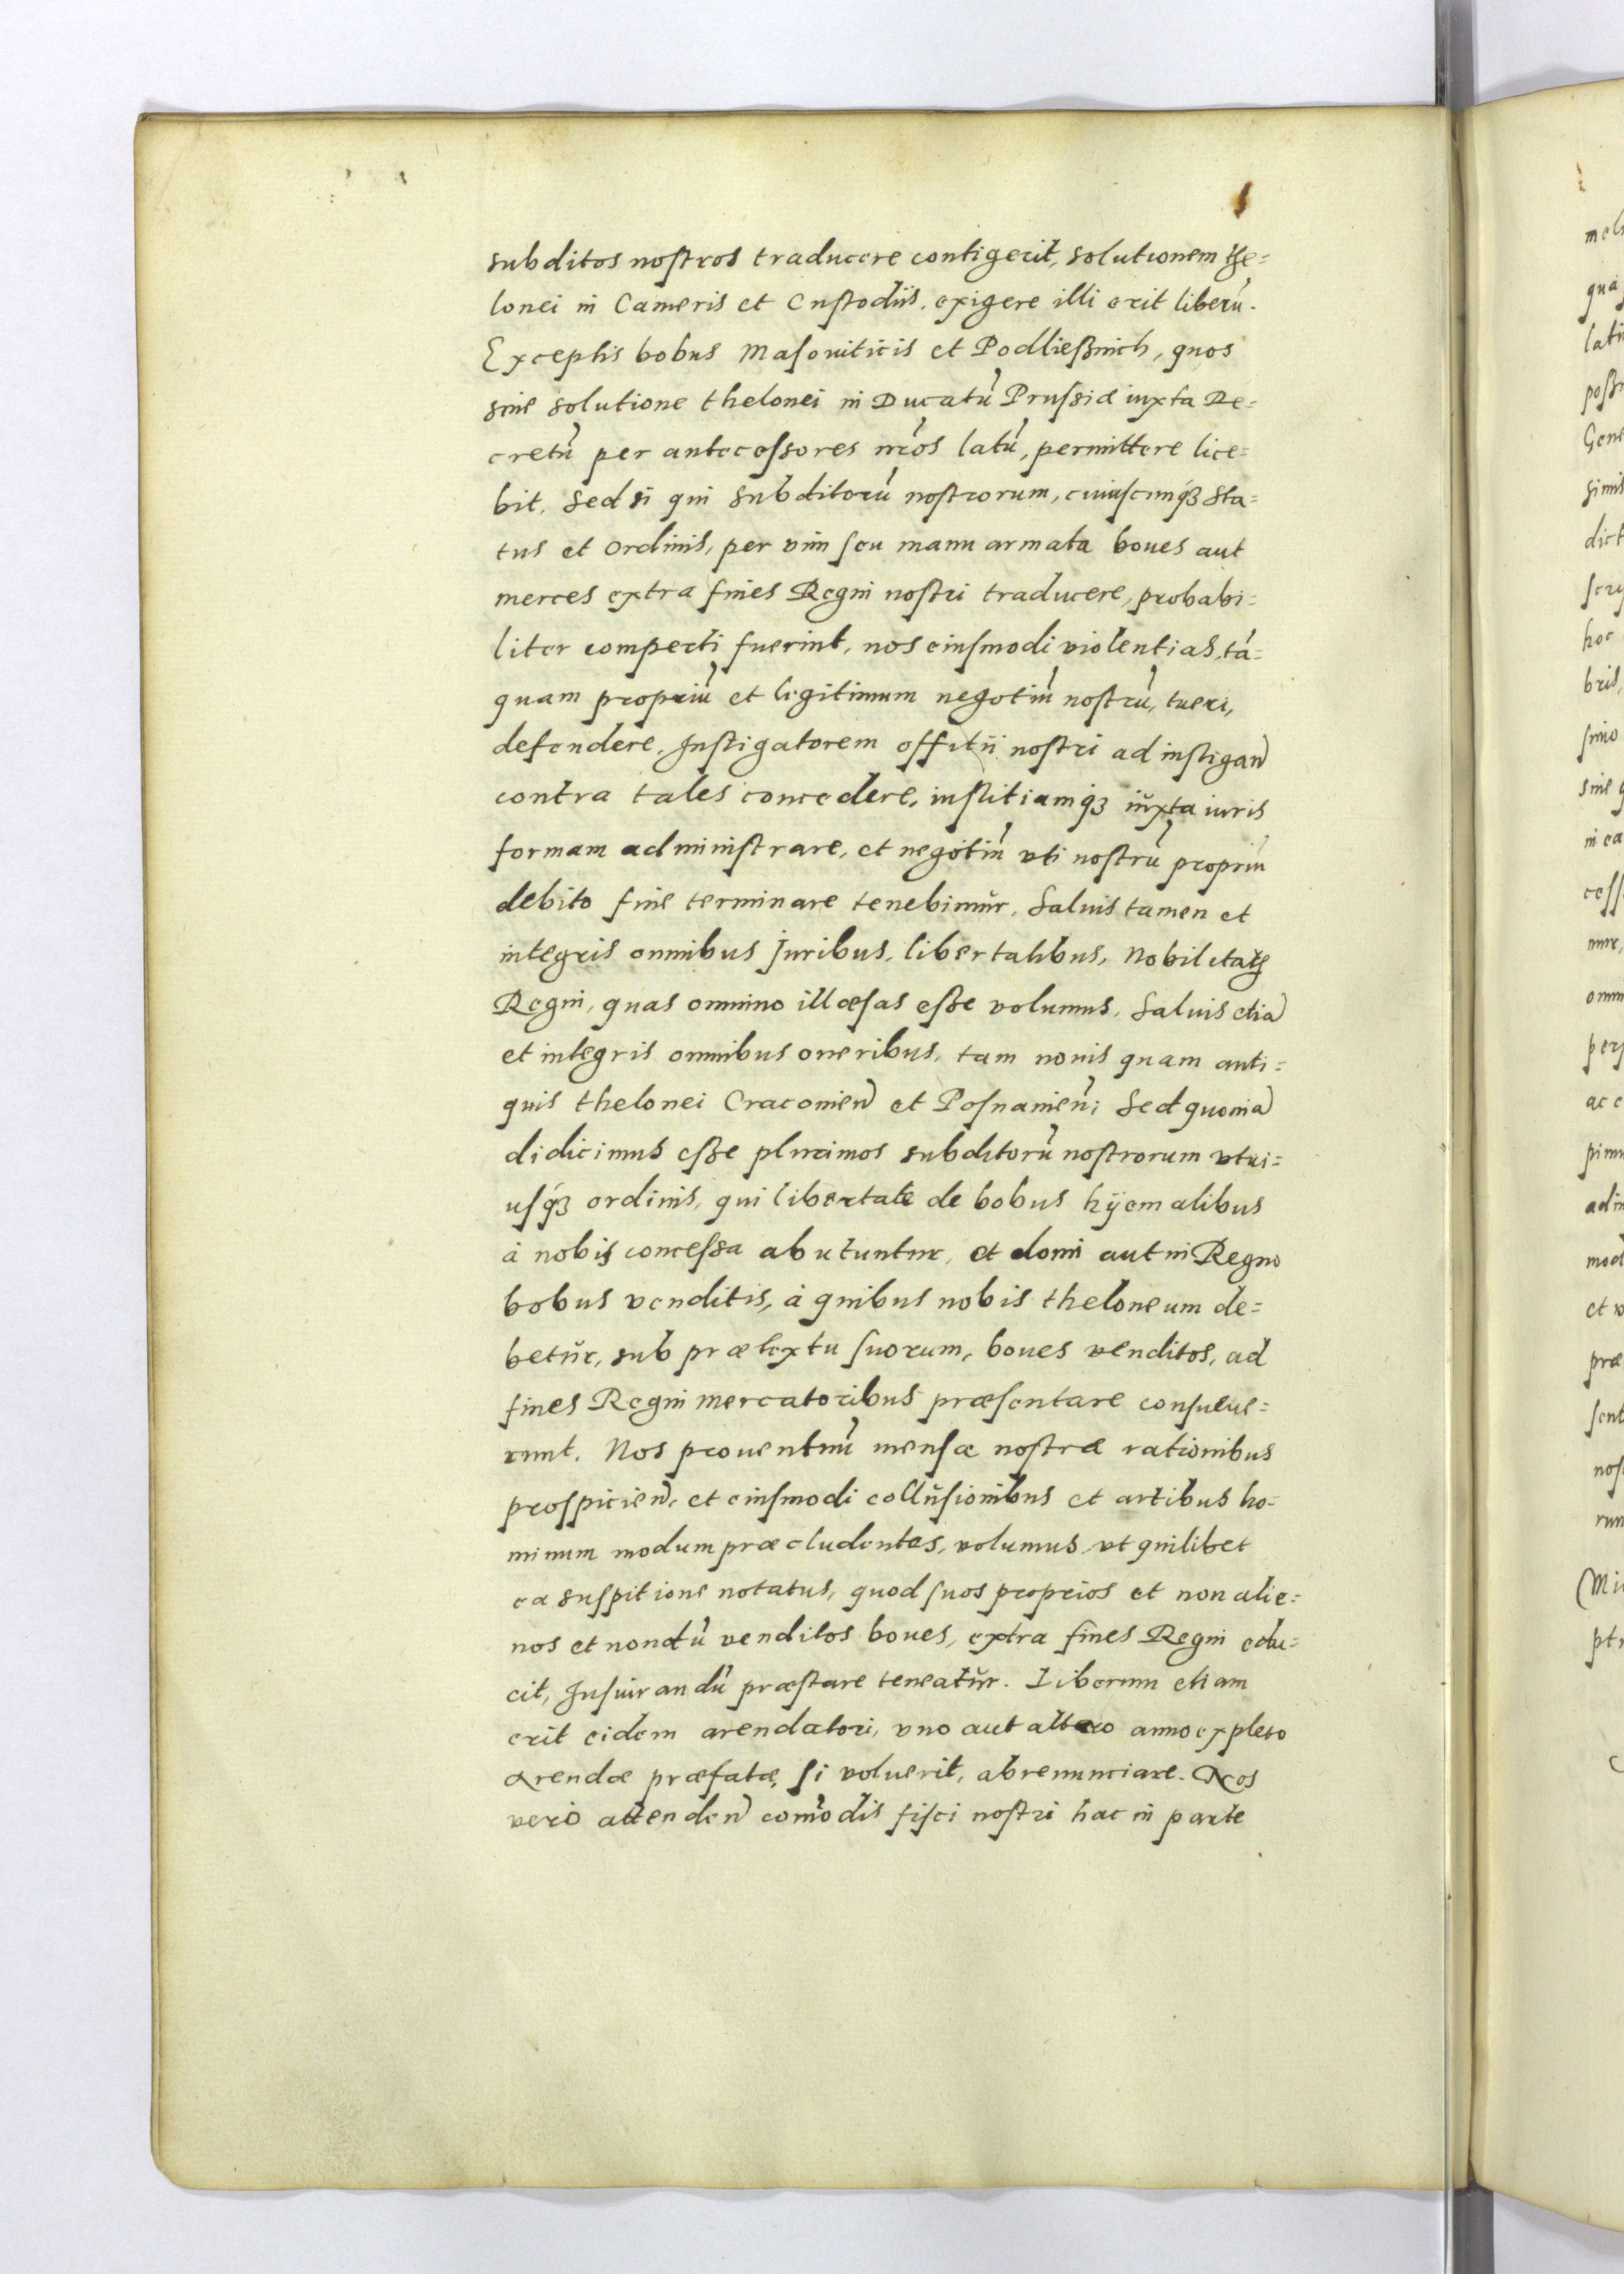 subditos nostros traducere contigerit, solutionem the=
lonei in Cameris et Custodiis, exigere illi erit liberū.
Exceptis bobus Masoviticis et Podliessnich, quos
sine solutione thelonei in Ducatū Prussiæ iuxta De=
cretū per antecessores nr̄os latū, permittere lice=
bit. Sed si qui subditorū nostrorum, cuiuscunqȝ sta=
tus et ordinis, per vim seu manu armata boues aut
merces extra fines Regni nostri traducere, probabi=
liter comperti fuerint, nos eiusmodi violentias, tā=
quam propriū et legitimum negotiū nostrū, tueri,
defendere, Instigatorem offitii nostri ad instigan̄
contra tales concedere, iustitiamqȝ iŭxta iuris
formam administrare, et negotiū vti nostrū propriū
debito fine terminare tenebimŭr. Saluis tamen et
integris omnibus Juribus, libertatibus, Nobilitatis
Regni, quas omnino illæsas esse volumus. Saluis etiā
et integris omnibus oneribus, tam nouis quam anti=
quis thelonei Cracouien̄ et Posnanien̄; Sed quoniā
didicimus esse plurimos subditorū nostrorum vtri=
usqȝ ordinis, qui libertate de bobus hyemalibus
à nobis concessa abutuntur, et domi aut in Regno
bobus venditis, à quibus nobis theloneum de=
betŭr, sub prætextu suorum, boues venditos, ad
fines Regni mercatoribus præsentare consueue=
runt. Nos prouentuū mensæ nostræ rationibus
prospicien̄, et eiusmodi collŭsionibus et artibus ho=
minum modum præcludentes, volumus, vt quilibet
ea suspitione notatus, quod suos proprios et non alie=
nos et nondū venditos boues, extra fines Regni edu=
cit, Jusiurandū præstare teneatŭr. Liberum etiam
erit eidem arendatori, vno aut altero anno expleto
Arendæ præfatæ, si voluerit, abrenunciare. Nos
vero attenden̄ com̄odis fisci nostri hac in parte